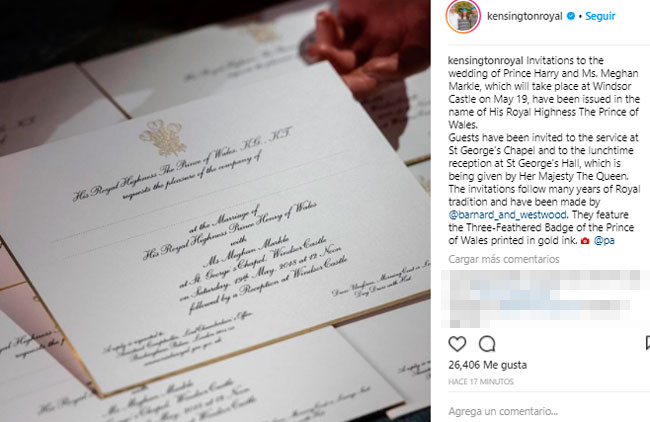 His Royal Highness The Prince of Wales, K.G., K.T.
requests the pleasure of the company of
at the Marriage of
His Royal Highness Prince Henry of Wales
with
Ms. Meghan Markle
at St. George's Chapel, Windsor Castle
on Saturday, 19th May, 2018 at 12 Noon
followed by a Reception at Windsor Castle
Dress: Uniform, Morning Coat or
Day Dress with Hat
A reply is requested to:
Comptroller, Lord Chamberlain's Office,
Buckingham Palace, London
with
Ms. Meghan Markle
at St. George's Chapel, Windsor Castle
kensingtonroyal • Seguir
kensingtonroyal Invitations to the
wedding of Prince Harry and Ms. Meghan
Markle, which will take place at Windsor
Castle on May 19, have been issued in the
name of His Royal Highness The Prince of
Wales.
Guests have been invited to the service at
St George's Chapel and to the lunchtime
reception at St George's Hall, which is
being given by Her Majesty The Queen.
The invitations follow many years of Royal
tradition and have been made by
@barnard_and_westwood. They feature
the Three-Feathered Badge of the Prince
of Wales printed in gold ink. 📷 @pa
Cargar más comentarios
26,406 Me gusta
HACE 17 MINUTOS
Agrega un comentario...